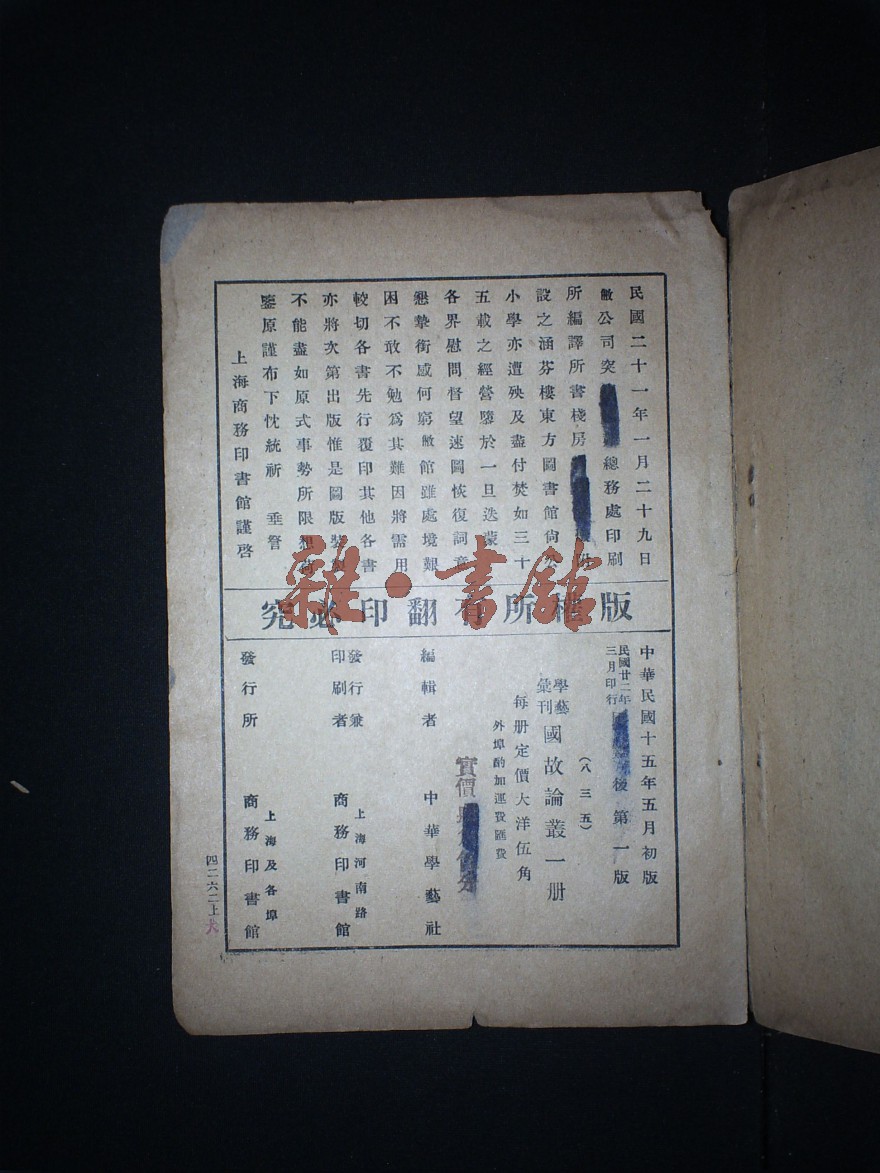 民國二十一年一月二十九日
敝公司突 總務處印刷
所編譯所書棧房 附
設之涵芬樓東方圖書館尙公
小學亦遭殃及盡付焚如三十
五載之經營墮於一旦迭蒙
各界慰問督望速圖恢復詞意
懇摯銜感何窮敝館雖處境艱
困不敢不勉爲其難因將需用
較切各書先行覆印其他各書
亦將次第出版惟是圖版裝
不能盡如原式事勢所限想
鑒原謹布下忱統祈 垂詧
上海商務印書館謹啓
版權所有翻印必究
雜·書館
中華民國十五年五月初版
民國廿二年三月印行 後第一版
(八三五)
學藝彙刊 國故論叢一册
每册定價大洋伍角
外埠酌加運費匯費
實價
編輯者 中華學藝社
發行兼印刷者 上海河南路 商務印書館
發行所 上海及各埠 商務印書館
四二六二上